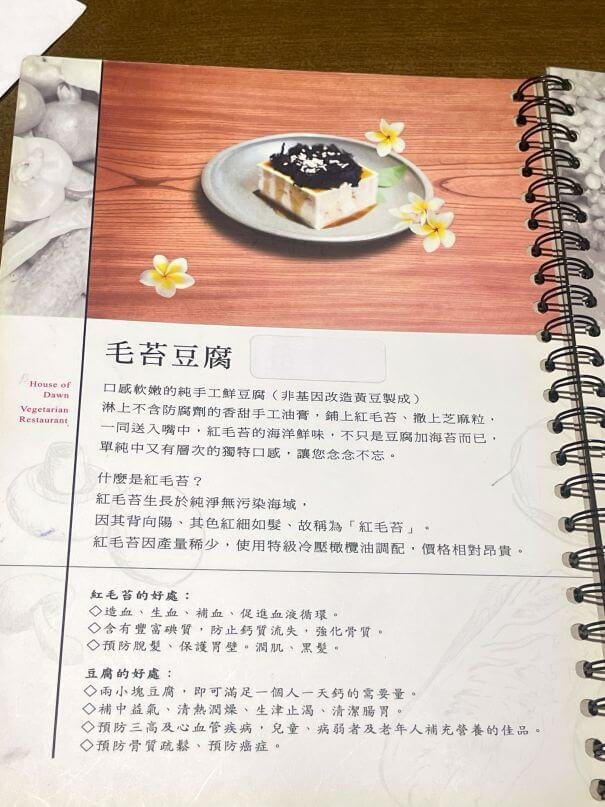 毛苔豆腐
House of
Dawn
Vegetarian
Restaurant
口感軟嫩的純手工鮮豆腐（非基因改造黃豆製成）
淋上不含防腐劑的香甜手工油膏，鋪上紅毛苔、撒上芝麻粒，
一同送入嘴中，紅毛苔的海洋鮮味，不只是豆腐加海苔而已，
單純中又有層次的獨特口感，讓您念念不忘。
什麼是紅毛苔？
紅毛苔生長於純淨無污染海域，
因其背向陽、其色紅細如髮、故稱為「紅毛苔」。
紅毛苔因產量稀少，使用特級冷壓橄欖油調配，價格相對昂貴。
紅毛苔的好處：
◇造血、生血、補血、促進血液循環。
◇含有豐富碘質，防止鈣質流失，強化骨質。
◇預防脫髮、保護胃壁。潤肌、黑髮。
豆腐的好處：
◇兩小塊豆腐，即可滿足一個人一天鈣的需要量。
◇補中益氣、清熱潤燥、生津止渴、清潔腸胃。
◇預防三高及心血管疾病，兒童、病弱者及老年人補充營養的佳品。
◇預防骨質疏鬆、預防癌症。